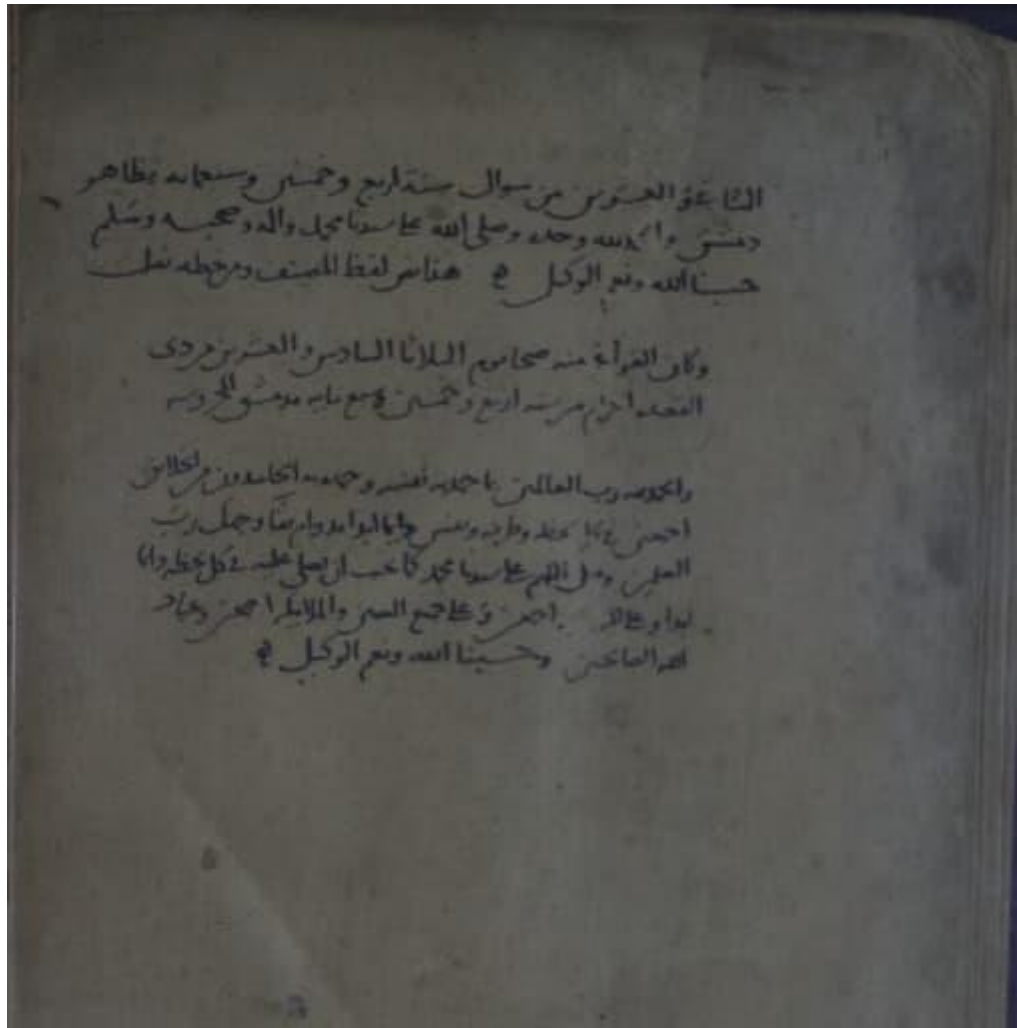 العشرين من شوال سنة اربع وخمسين وسبعمائه بظاهر
دمشق والحمد لله وحده وصلى الله على سيدنا محمد واله وصحبه وسلم
حسبنا الله ونعم الوكيل هذا من لفظ المصنف ومن خطه نقل
وكان الفراغ منه ضحا يوم الثلاثا السادس والعشرين من ذى
القعده الحرام من سنه اربع وخمسين وسبع مايه بدمشق المحروسه
والحمد لله رب العالمين ما حمد به نفسه وحمده به الحامدون من خلايق
اجمعين في كل لحظه
العالمين وصل اللهم على سيدنا محمد كما تحب ان يصلى عليه في كل لحظه دايما
ابدا وعلى اجمعين وعلى جميع النبيين والملايكه اجمعين وعباد
الله الصالحين وحسبنا الله ونعم الوكيل